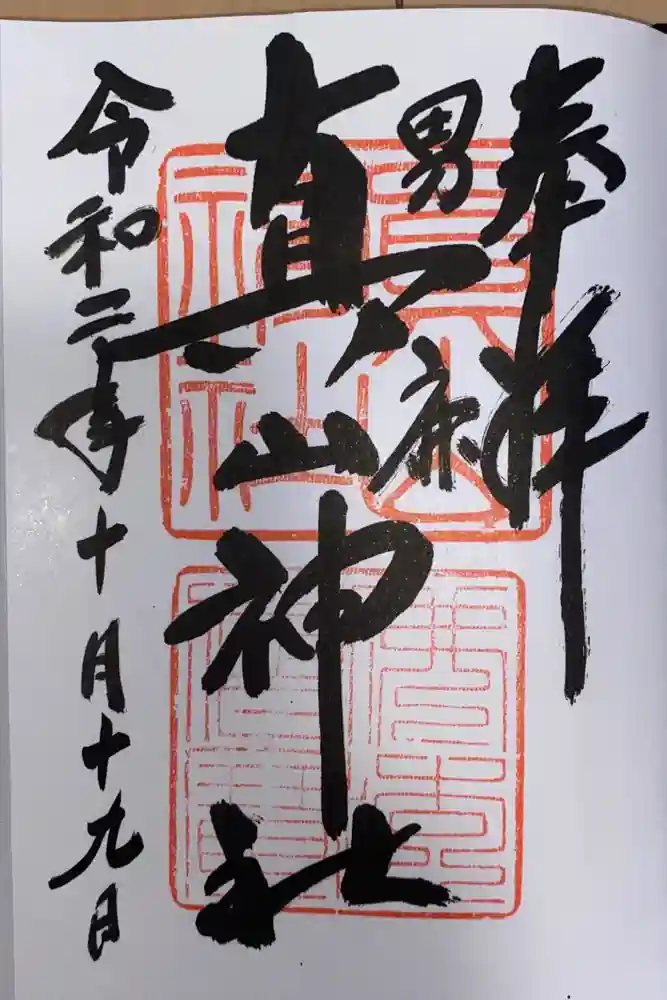 奉拝
男鹿
真山神社
令和二年十月十九日
真山
神社